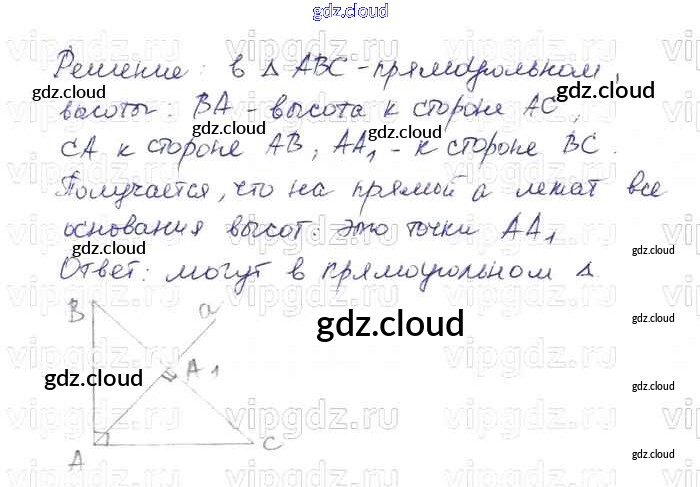 gdz.cloud
Решение: в Δ ABC - прямоугольном,
высоты: BA - высота к стороне AC,
CA к стороне AB, AA₁ - к стороне BC.
Получается, что на прямой a лежат все
основания высот: это точки AA₁
Ответ: могут в прямоугольном Δ
B
a
A₁
A
C
gdz.cloud
gdz.cloud
gdz.cloud
gdz.cloud
gdz.cloud
gdz.cloud
gdz.cloud
gdz.cloud
gdz.cloud
gdz.cloud
vipgdz.ru
vipgdz.ru
vipgdz.ru